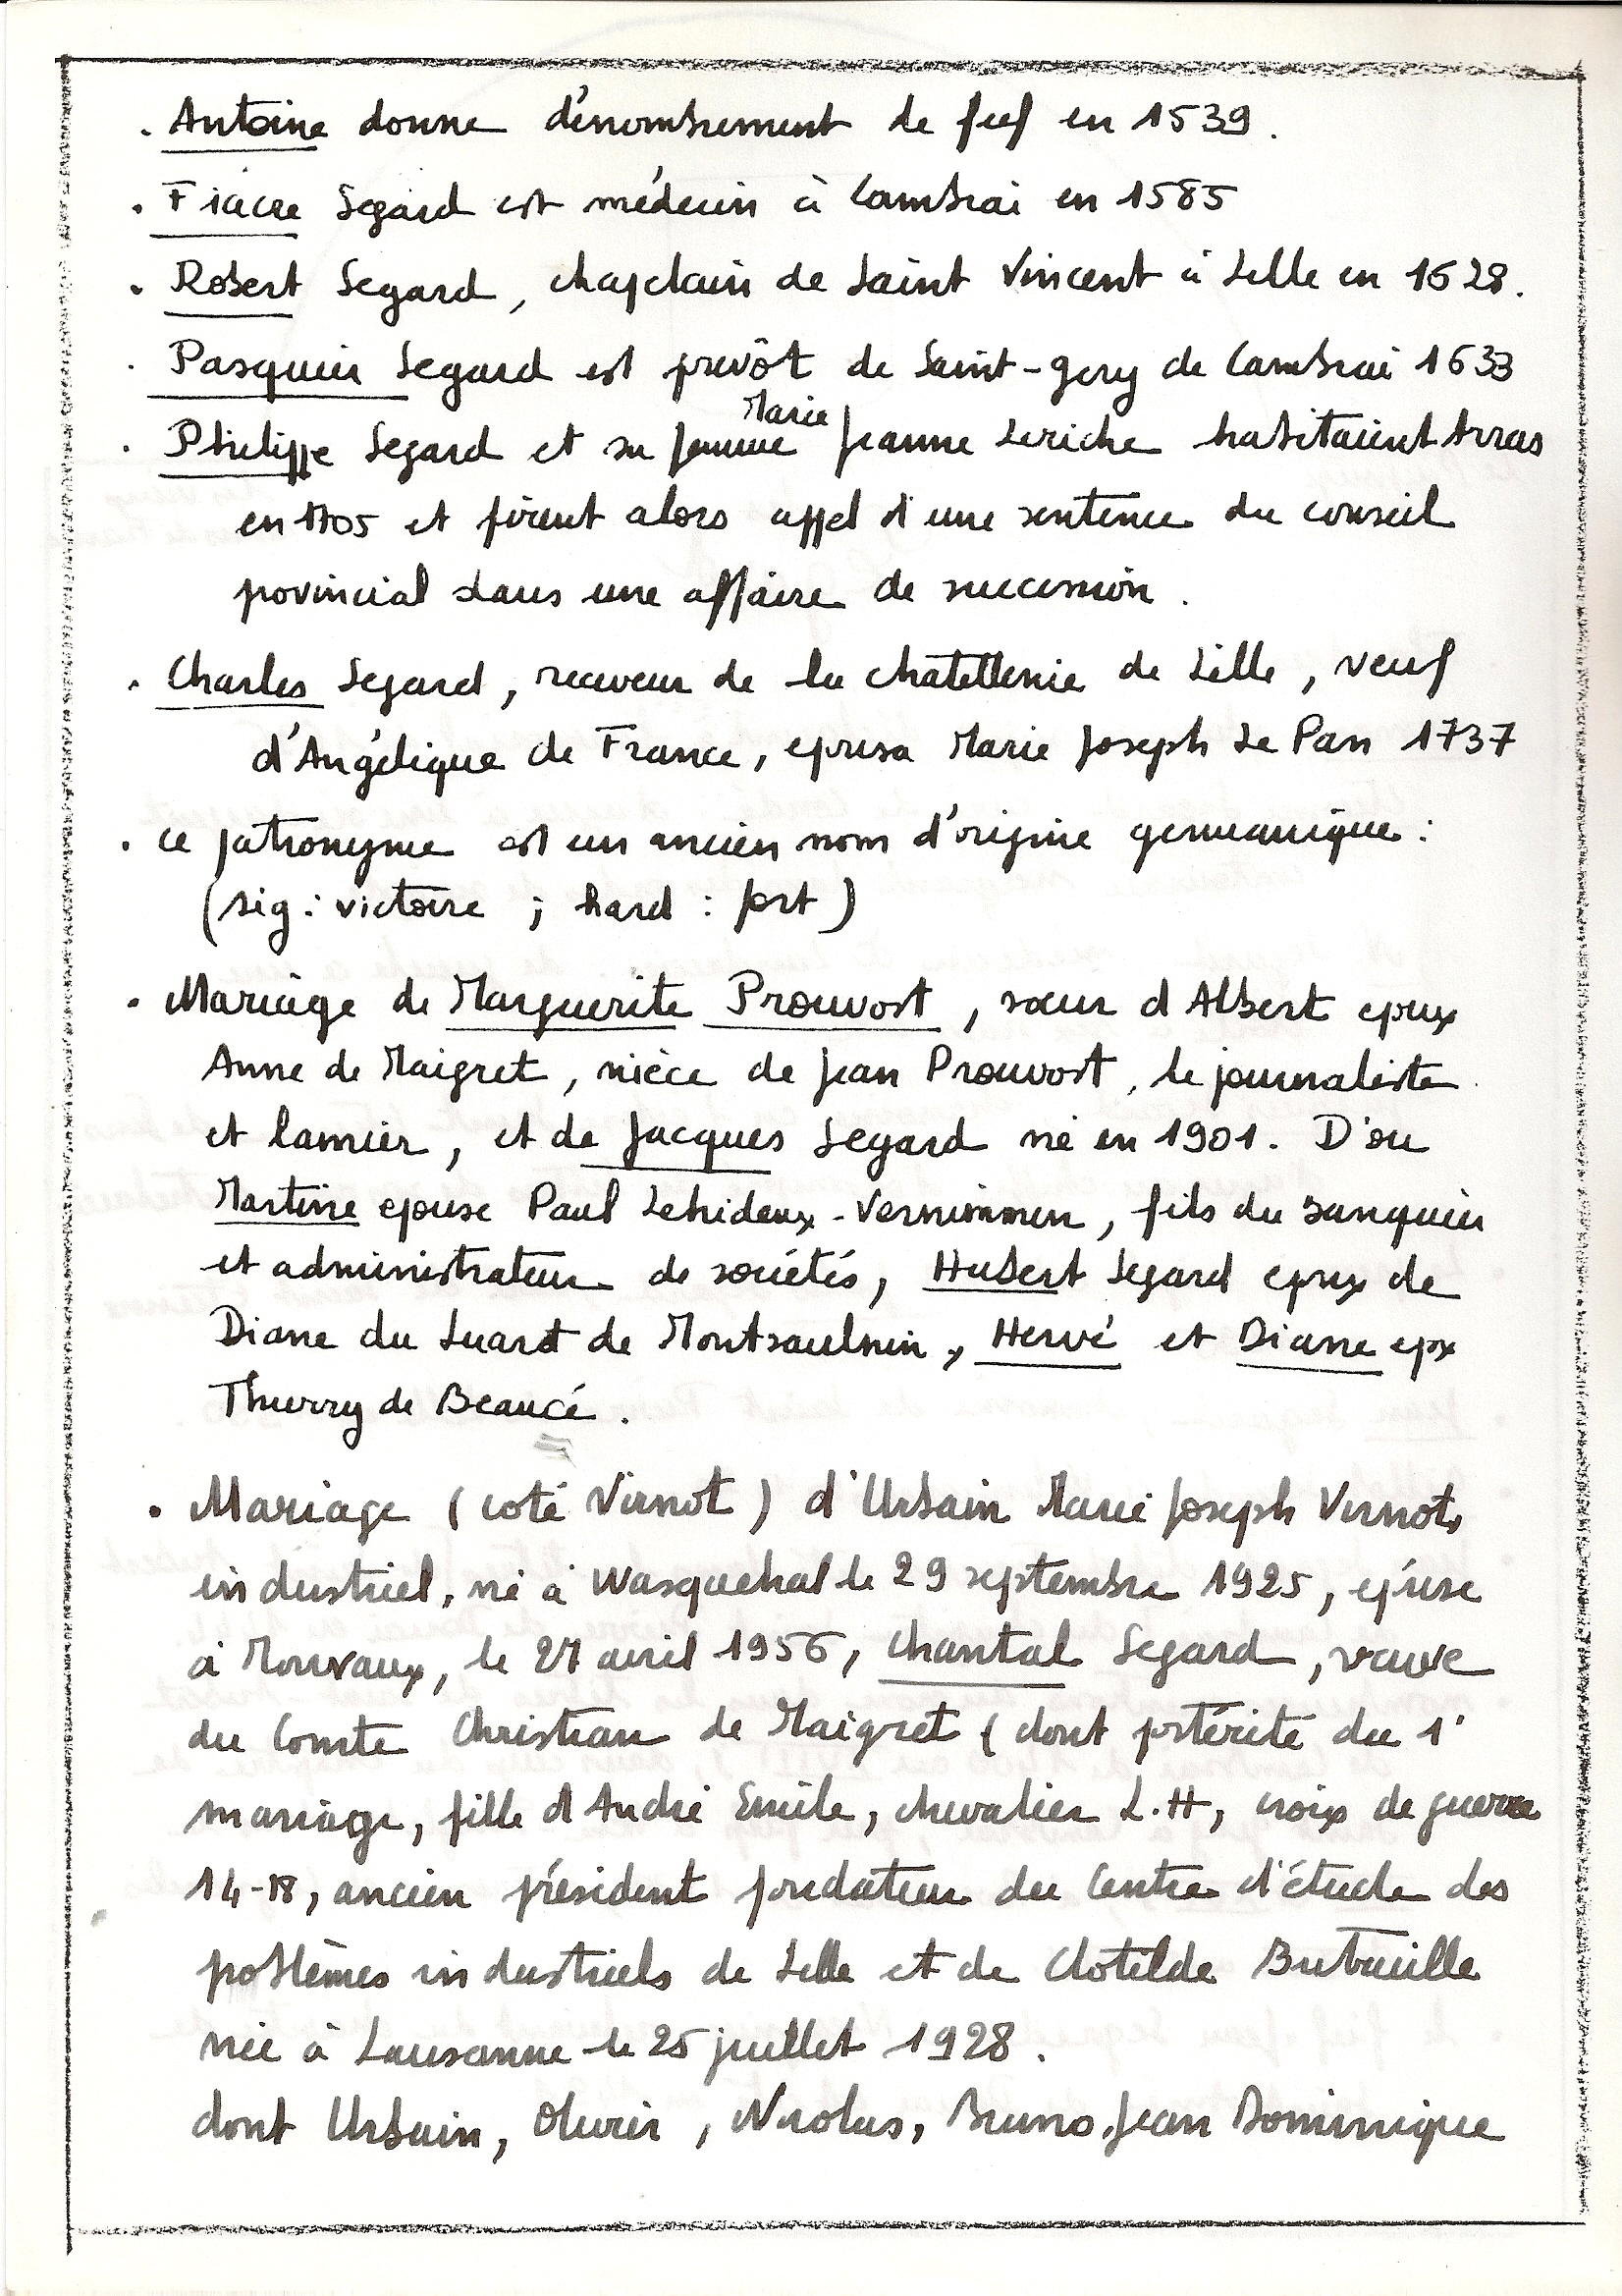 . Antoine donne dénombrement de fief en 1539.
. Fiacre Segard est médecin à Cambrai en 1585
. Robert Segard, chapelain de Saint Vincent à Lille en 1628.
. Pasquier Segard est prévôt de Saint-Gery de Cambrai 1633
Marie
. Philippe Segard et sa femme Jeanne Leriche habitaient Arras
en 1705 et firent alors appel d'une sentence du conseil
provincial dans une affaire de succession.
. Charles Segard, receveur de la chatellenie de Lille, veuf
d'Angélique de France, epousa Marie Joseph Le Pan 1737
. ce patronyme est un ancien nom d'origine germanique :
(sig : victoire ; hard : fort)
. Mariage de Marguerite Prouvost, sœur d'Albert epoux
Anne de Maigret, nièce de Jean Prouvost, le journaliste
et lainier, et de Jacques Segard né en 1901. D'ou
Martine epouse Paul Lehideux-Vernimmen, fils du banquier
et administrateur de sociétés, Hubert Segard epoux de
Diane du Luart de Montsaulnin, Hervé et Diane epx
Thierry de Beaucé.
. Mariage (coté Virnot) d'Urbain Marie Joseph Virnot,
industriel, né à Wasquehal le 29 septembre 1925, épouse
à Mouvaux, le 27 avril 1956, Chantal Segard, veuve
du Comte Christian de Maigret (dont postérité du 1'
mariage, fille d'André Emile, chevalier L.H, croix de guerre
14-18, ancien président fondateur du Centre d'étude des
problèmes industriels de Lille et de Clotilde Butruille
née à Lausanne le 25 juillet 1928.
dont Urbain, Olivier, Nicolas, Bruno, Jean Dominique